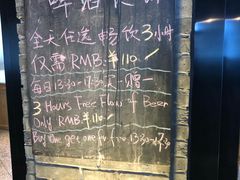 全天任选 畅饮3小时
仅需 RMB:¥110/
每日13:30-17:30买一赠一
3 Hours Free Flow of Beer
Only RMB:¥110/
Buy one get one for from 13:30-17:30